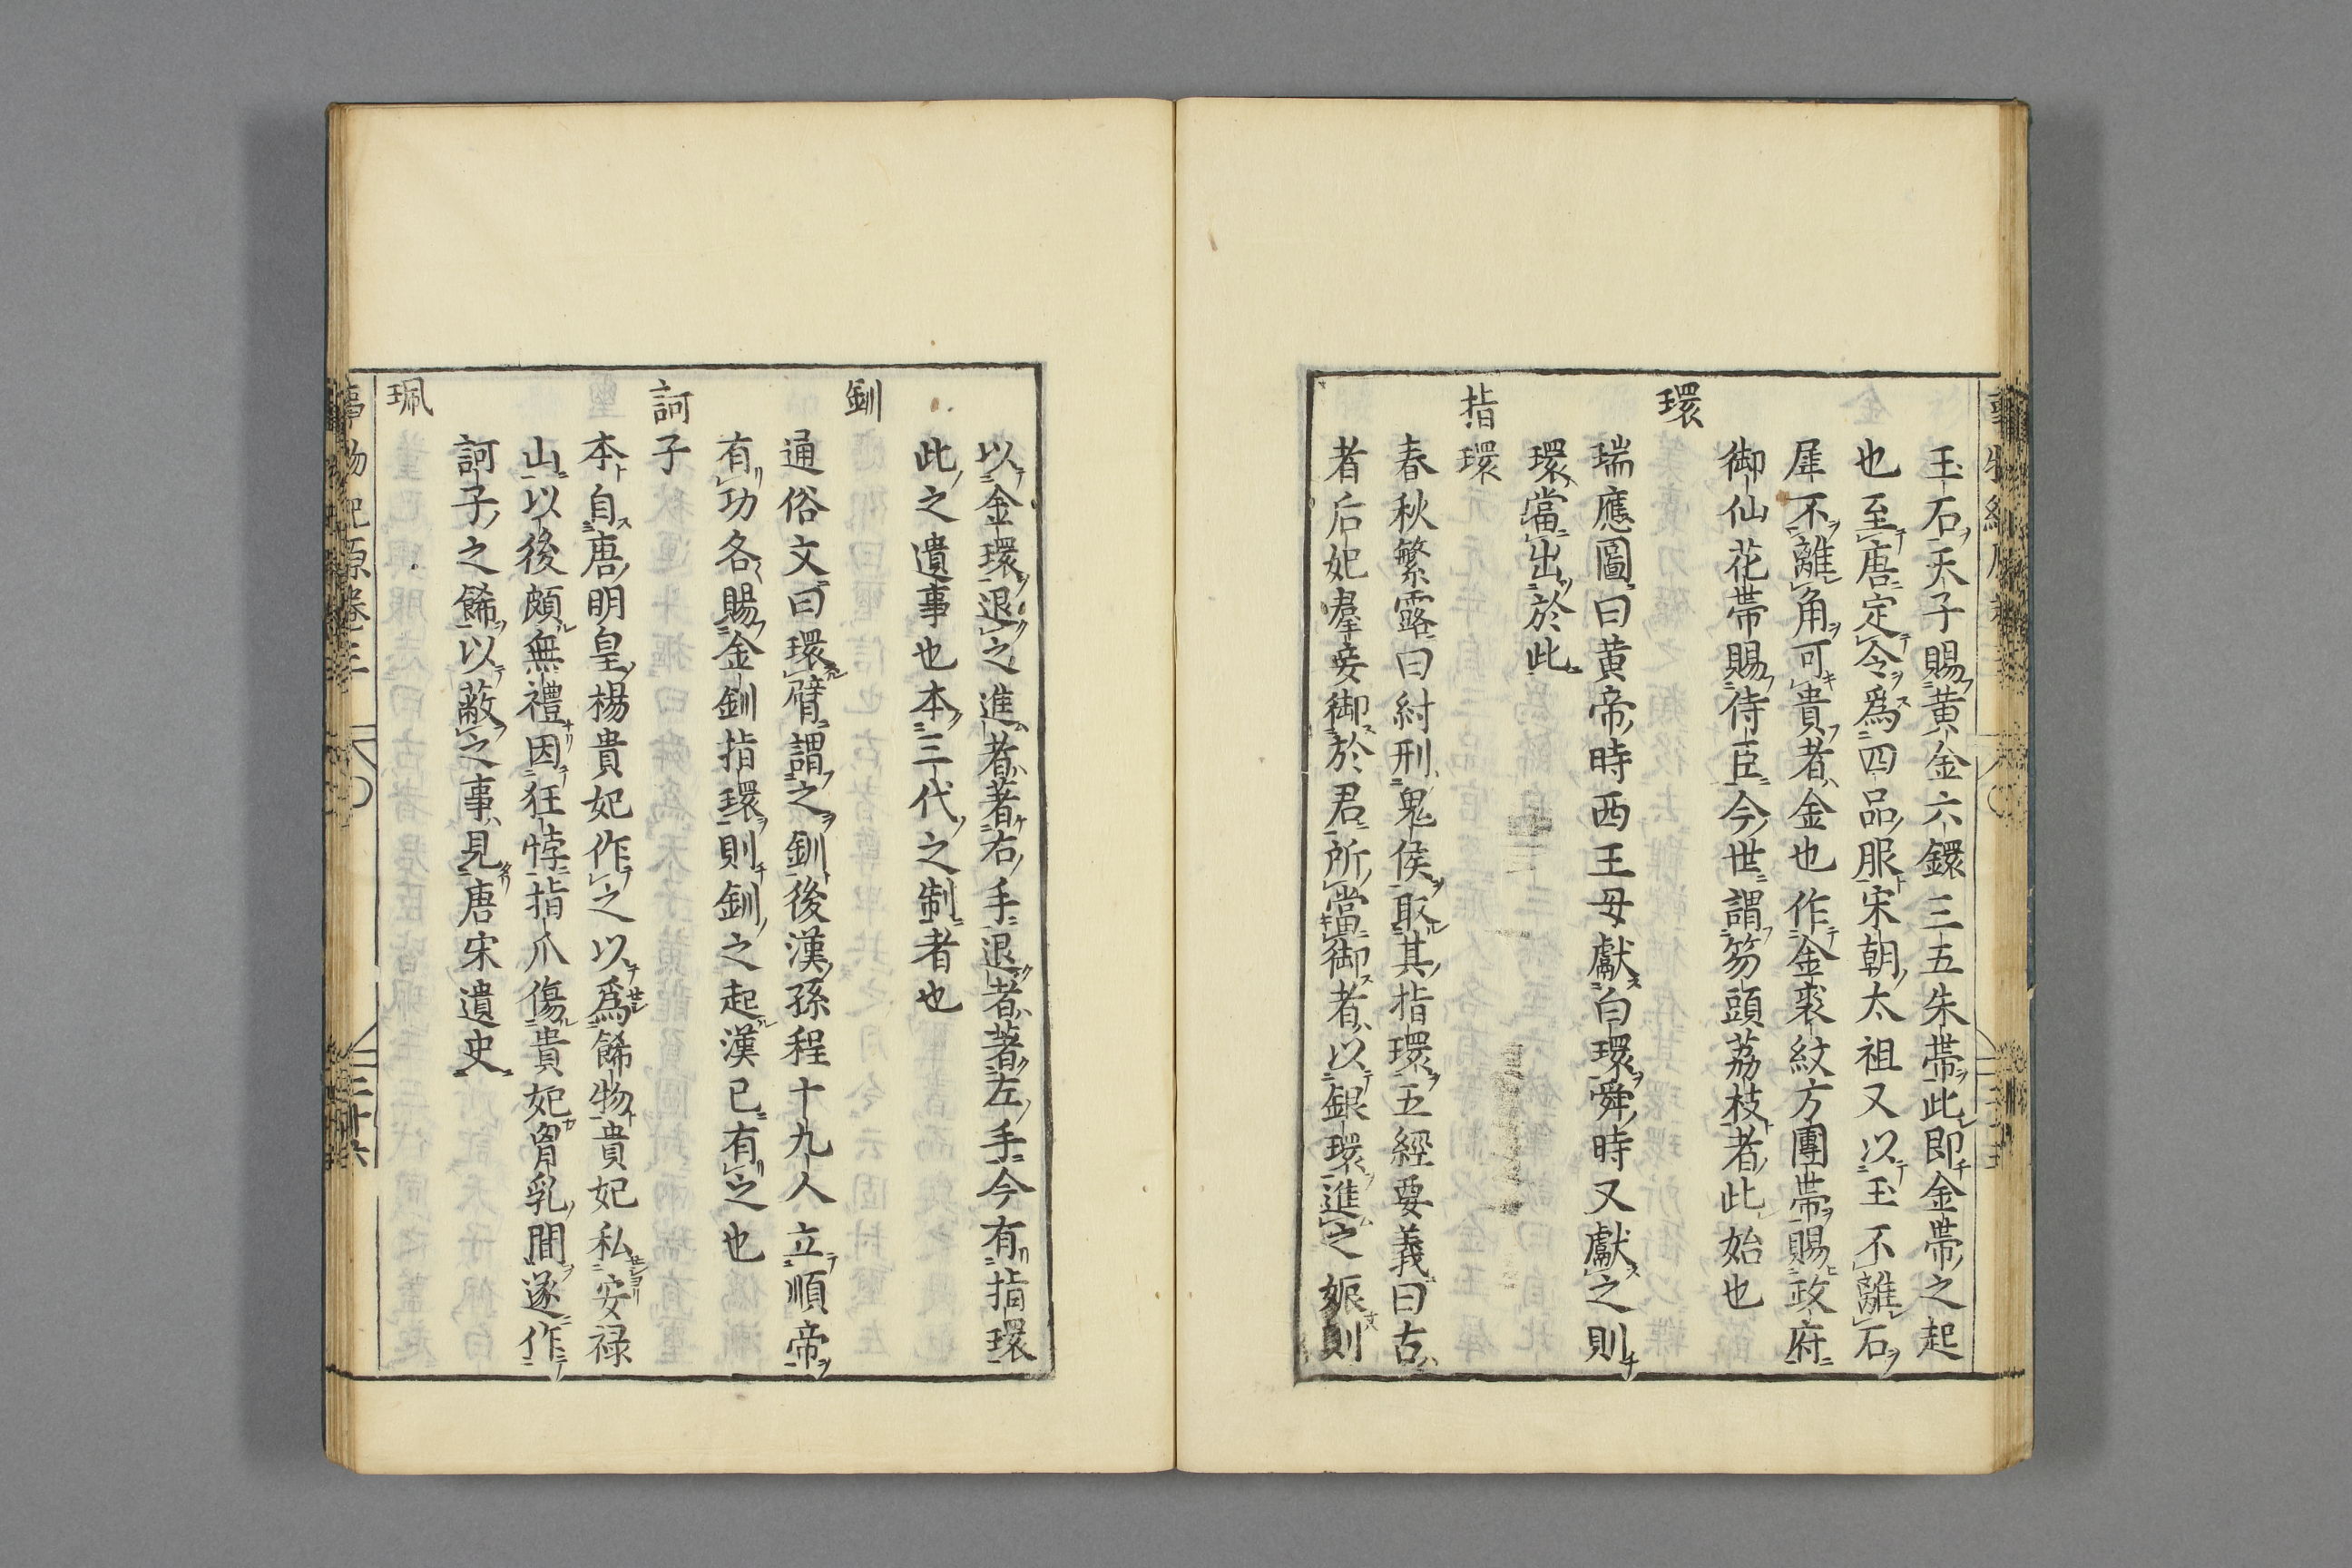 玉石天子賜黄金六鐶三五朱帯此即金帯之起
也至唐定令爲四品服宋朝太祖又以玉不離石
犀不離角可貴者金也作金裘紋方團帯賜政府
御仙花帯賜侍臣今世謂笏頭荔枝者此始也
環
瑞應圖曰黄帝時西王母獻白環舜時又獻之則
環當出於此
指環
春秋繁露曰紂刑鬼侯取其指環五經要義曰古
者后妃羣妾御於君所當御者以銀環進之娠則
以金環退之進者著右手退者著左手今有指環
此之遺事也本三代之制者也
釧
通俗文曰環臂謂之釧後漢孫程十九人立順帝
有功各賜金釧指環則釧之起漢已有之也
訶子
本自唐明皇楊貴妃作之以爲餙物貴妃私安禄
山以後頗無禮因狂悖指爪傷貴妃胷乳間遂作
訶子之餙以蔽之事見唐宋遺史
珮
事物紀原卷三
二十六